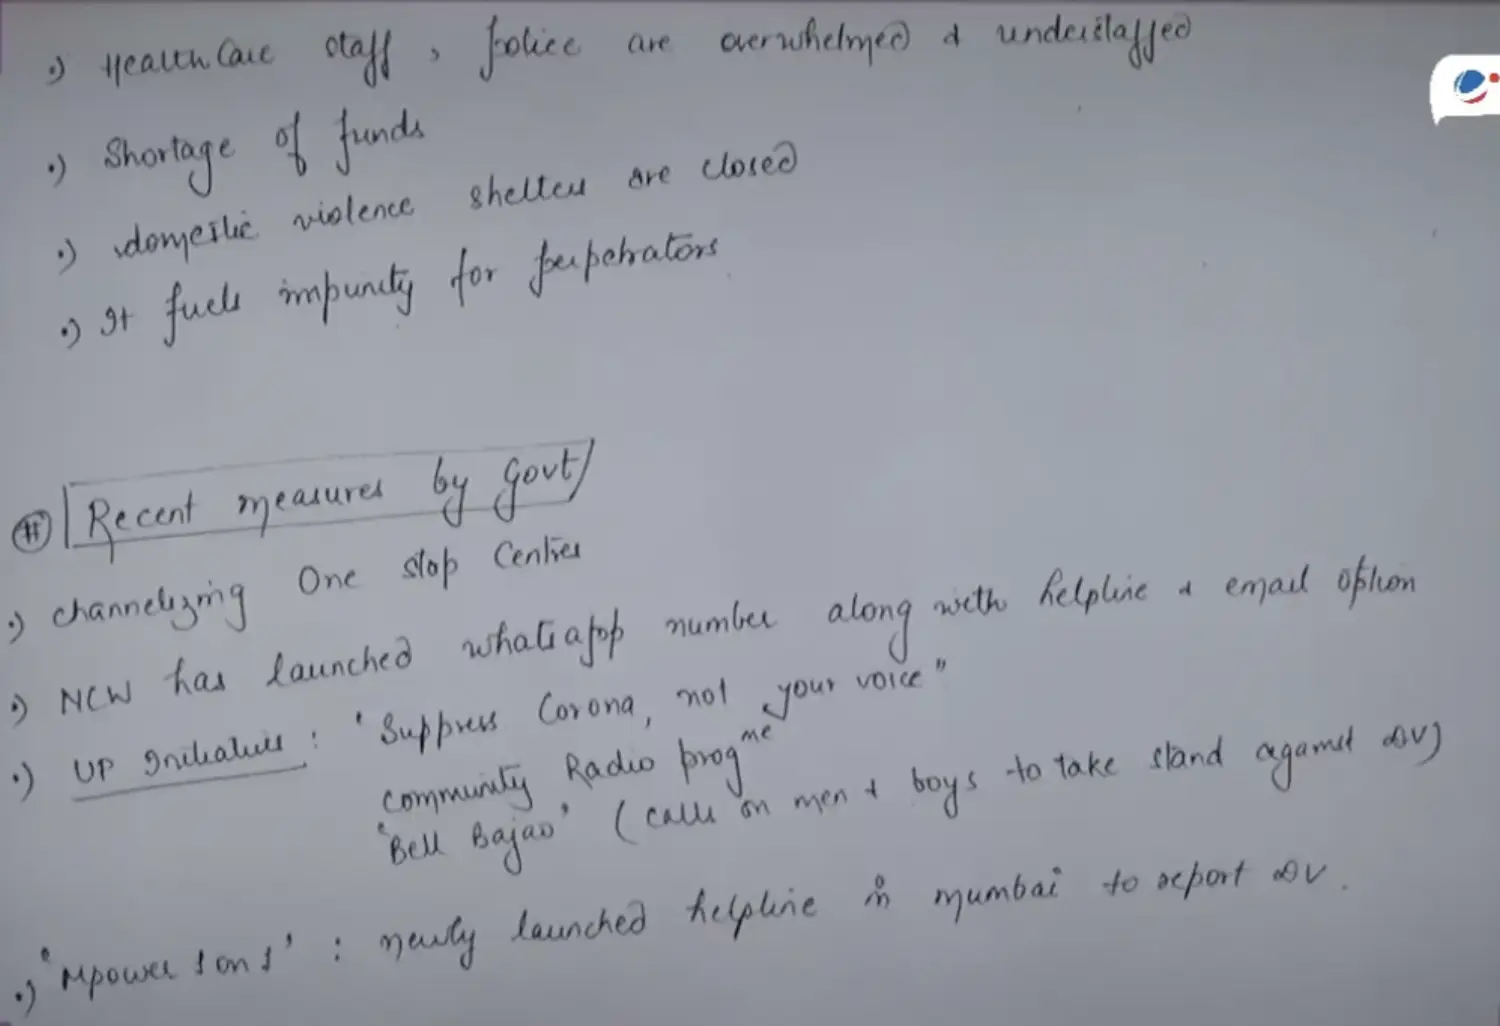 •) HealthCare staff, police are overwhelmed & understaffed
•) Shortage of funds
•) domestic violence shelters are closed
•) It fuels impunity for perpetrators
# Recent measures by Govt
•) channelizing One stop Centres
•) NCW has launched whatsapp number along with helpline & email option
•) UP Initiatives : 'Suppress Corona, not your voice"
community Radio progme
'Bell Bajao' (calls on men & boys to take stand against DV)
•) 'Mpower 1 on 1' : newly launched helpline in mumbai to report DV.